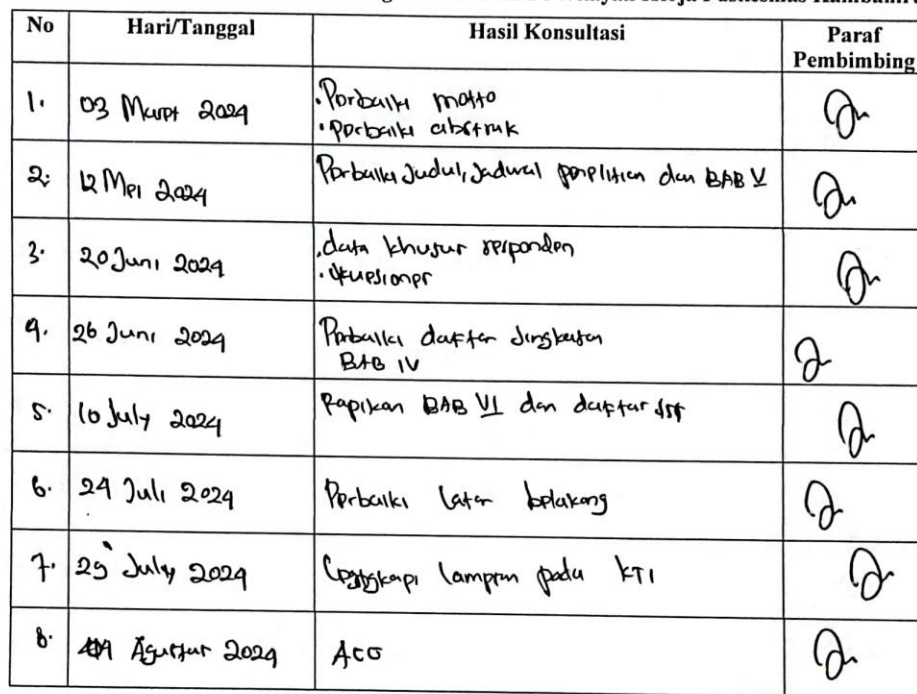 Wilayah Kerja Puskesmas Kambaniru
No Hari/Tanggal Hasil Konsultasi Paraf Pembimbing
1. 03 Maret 2024 .Perbaiki motto
.perbaiki abstrak
2. 12 Mei 2024 Perbaiki Judul, Jadwal penelitian dan BAB V
3. 20 Juni 2024 .data khusus responden
.kuesioner
4. 26 Juni 2024 Perbaiki daftar Singkatan
BAB IV
5. 10 July 2024 Rapikan BAB VI dan daftar isi
6. 24 Juli 2024 Perbaiki latar belakang
7. 29 July 2024 Lengkapi lampiran pada KTI
8. Agustus 2024 ACC